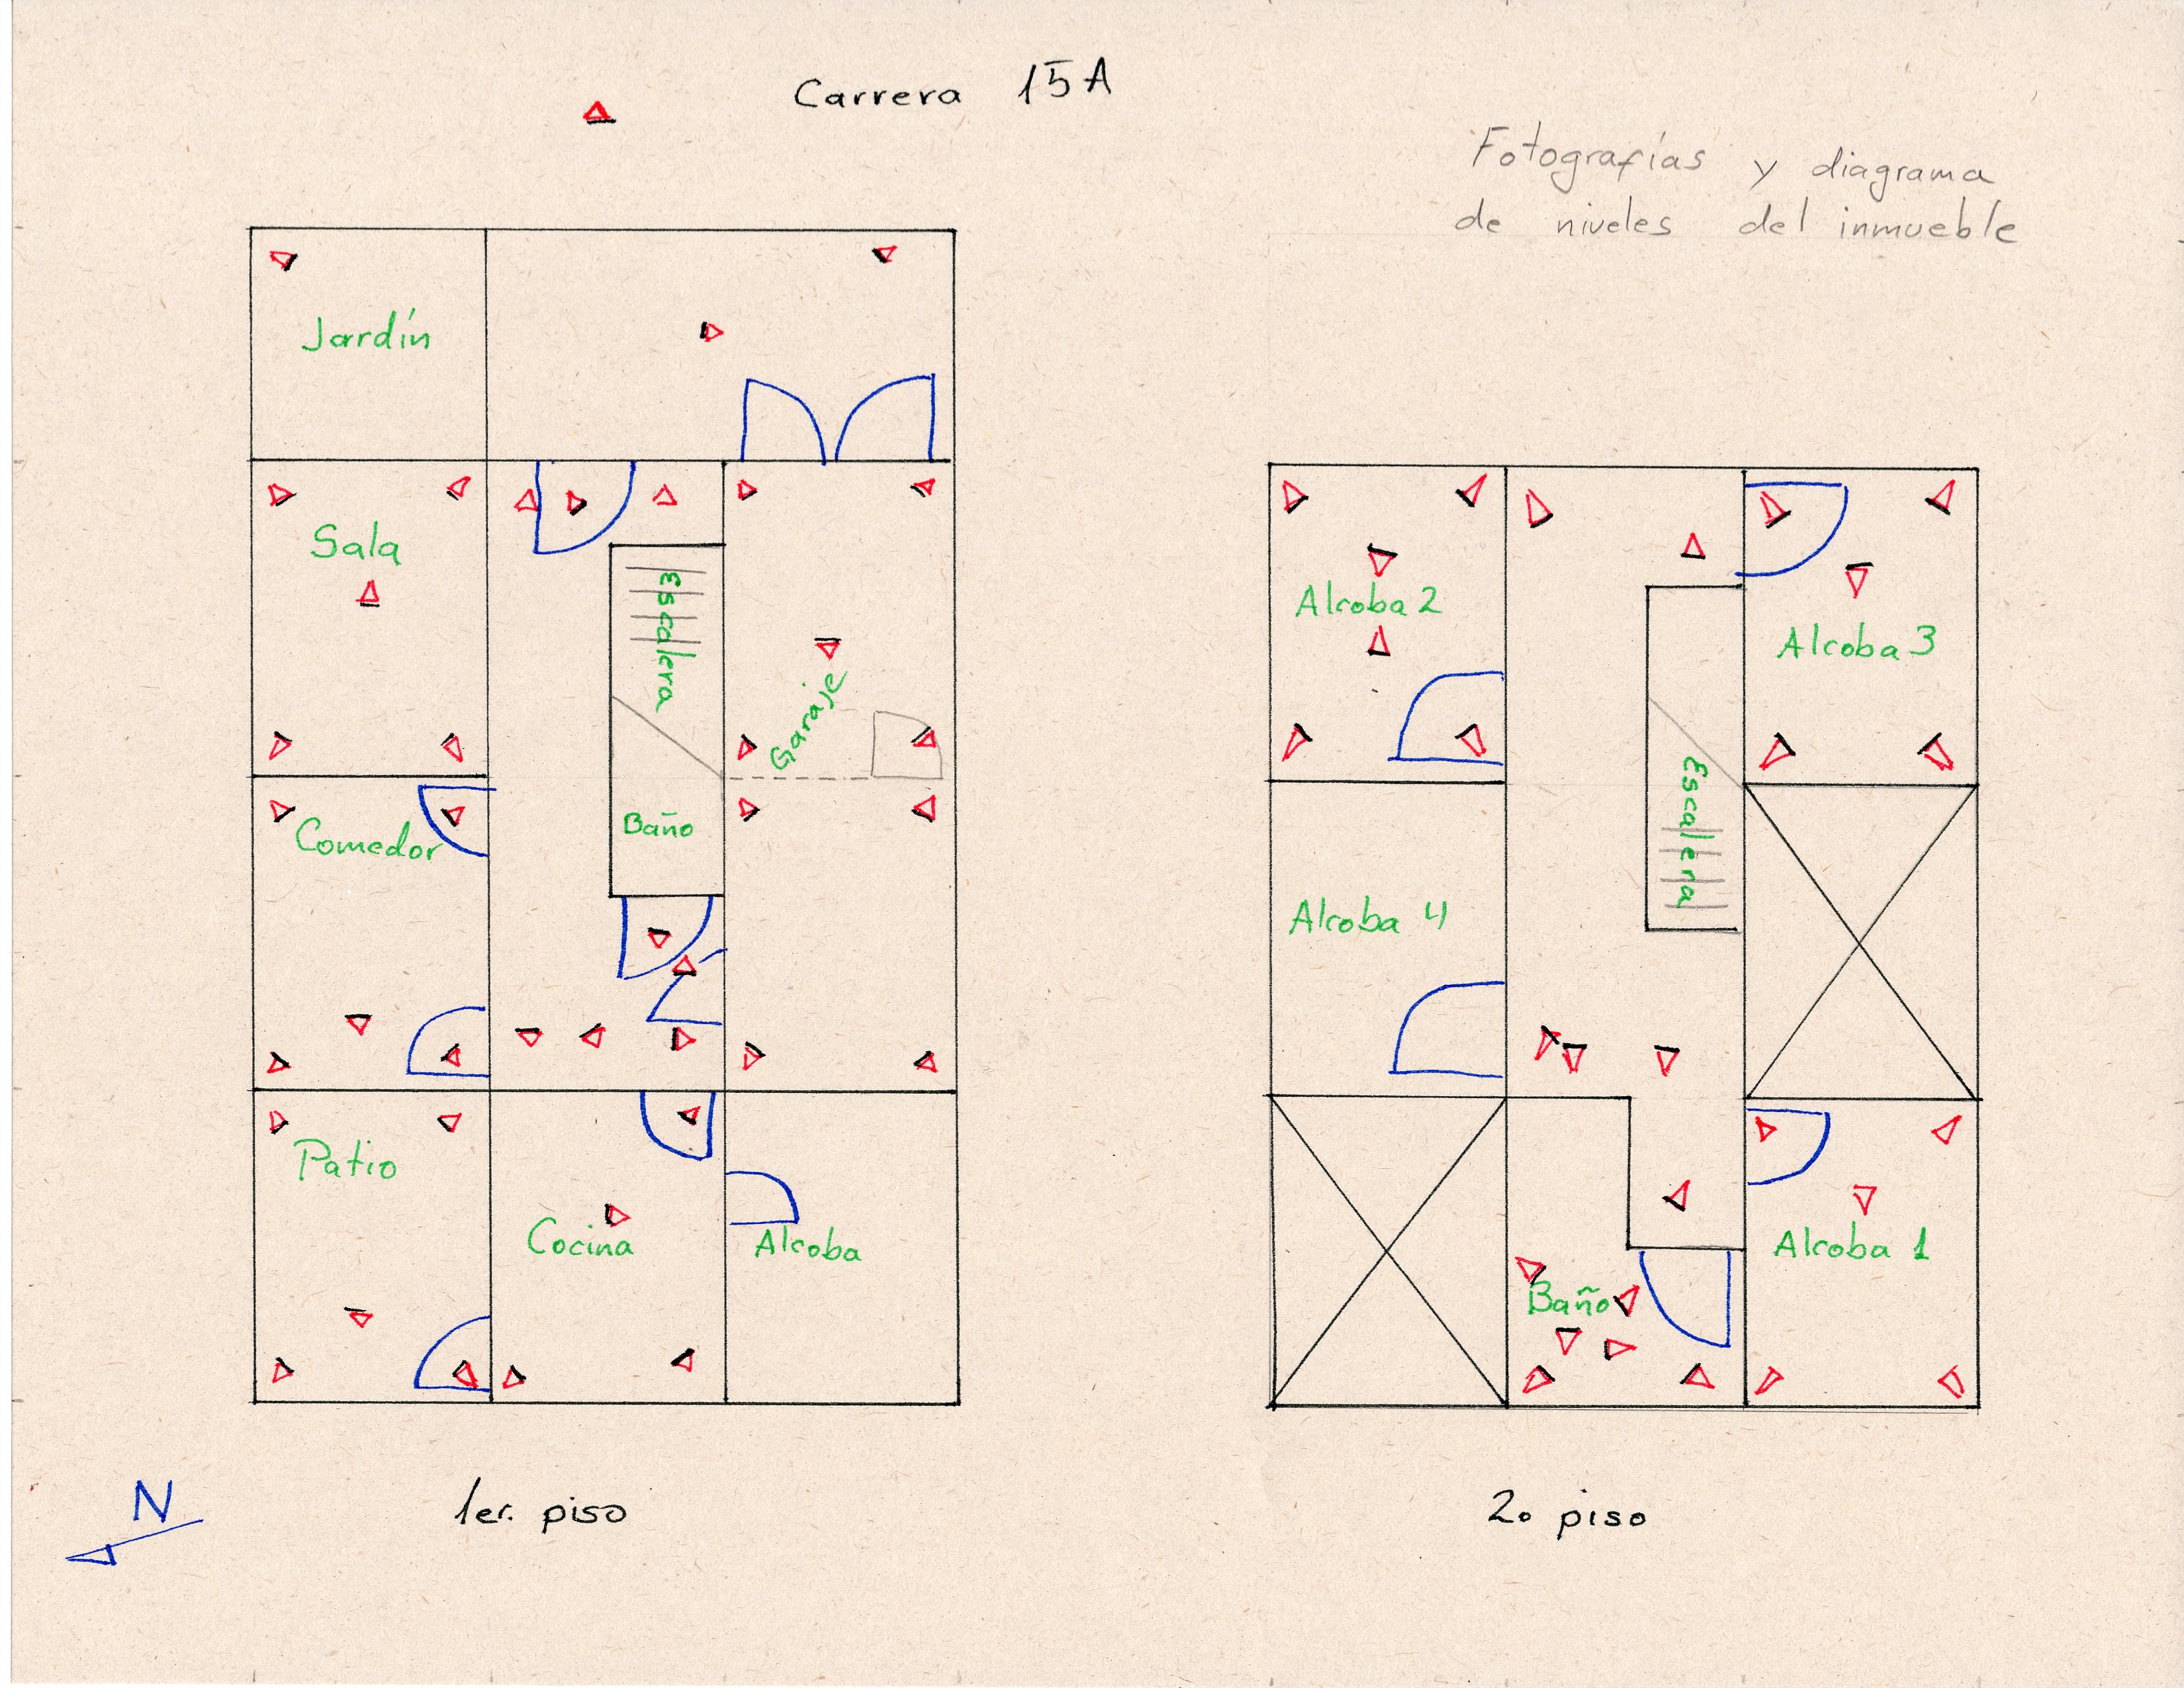 Carrera 15A
Fotografías y diagrama
de niveles del inmueble
Jardín
Sala
Escalera
Garaje
Comedor
Baño
Patio
Cocina
Alcoba
1er. piso
N
Alcoba 2
Alcoba 3
Escalera
Alcoba 4
Alcoba 1
Baño
2o piso